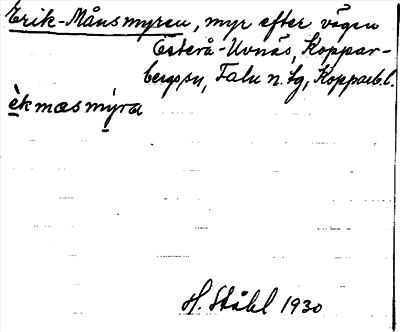 Erik-Månsmyren, myr efter vägen
Österå-Uvnäs, Koppar-
bergs sn, Falu n. tg, Kopparb. l.
èkmæsmýra
H. Ståhl 1930